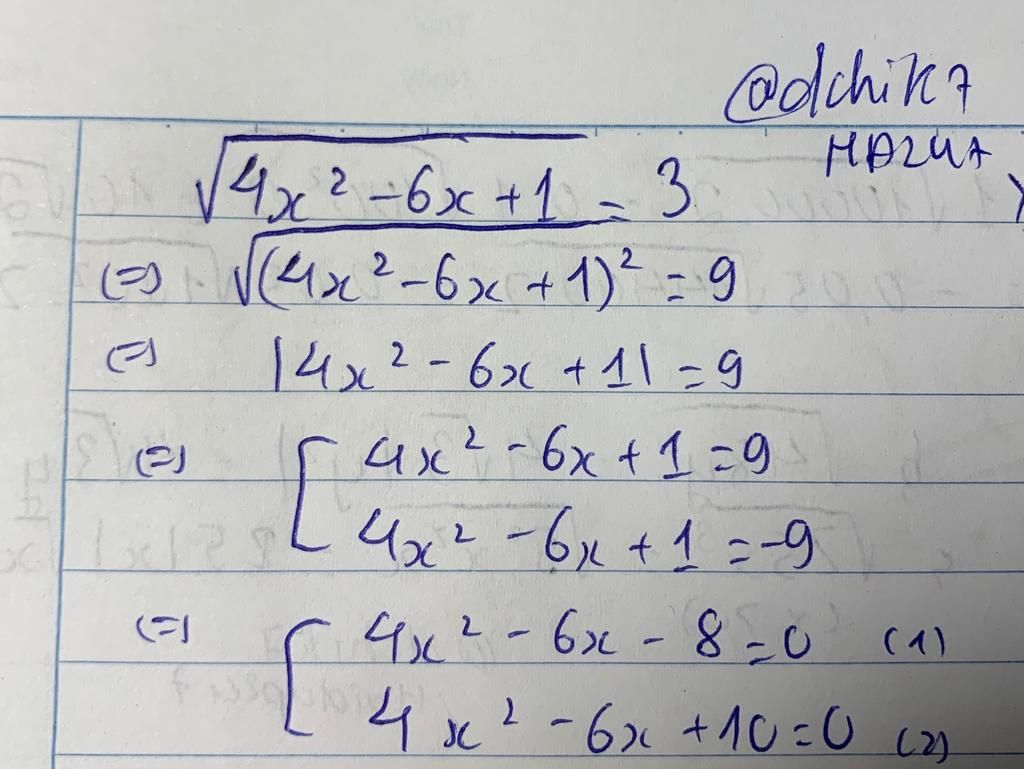 @dchik7
√(4x² - 6x + 1) = 3
(=) √((4x² - 6x + 1)²) = 9
(=) |4x² - 6x + 1| = 9
(=) [ 4x² - 6x + 1 = 9
4x² - 6x + 1 = -9
(=) [ 4x² - 6x - 8 = 0 (1)
4x² - 6x + 10 = 0 (2)